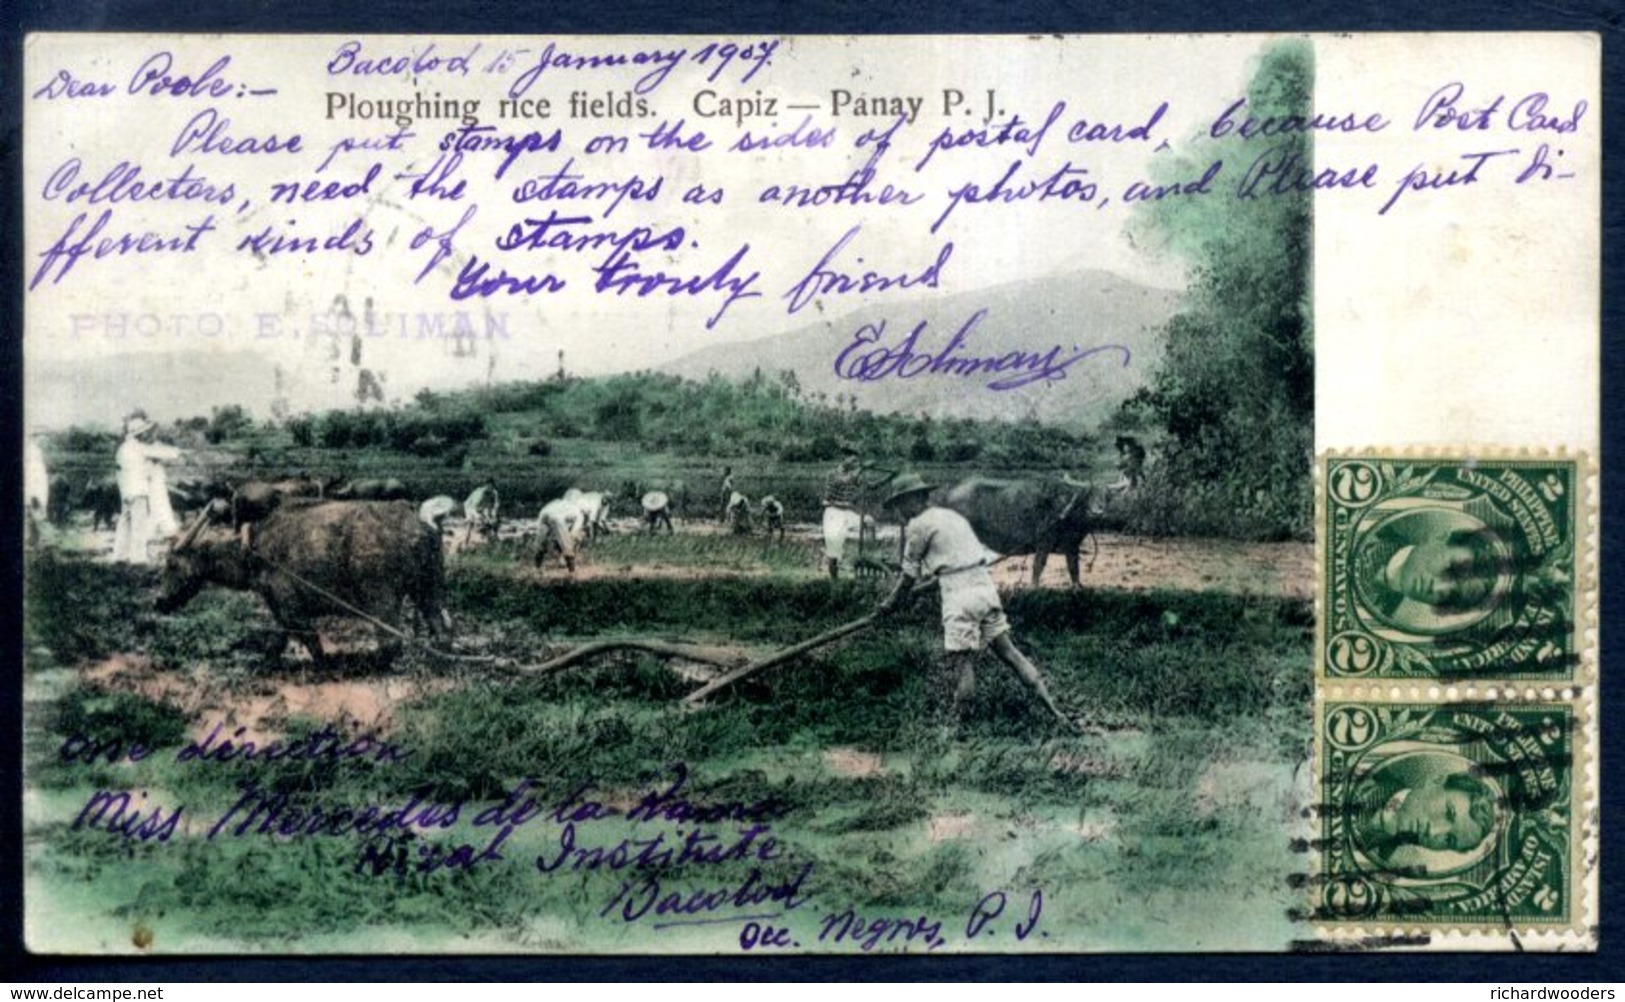 Bacolod, 15 January 1907.
Dear Poole:—
Ploughing rice fields. Capiz — Panay P. J.
Please put stamps on the sides of postal card, because Post Card
Collectors, need the stamps as another photos, and Please put di-
fferent kinds of stamps.
Your trouly friend
PHOTO E. SOLIMAN
E Soliman
One direction
Miss Mercedes de la Rama
Rizal Institute
Bacolod
Occ. Negros, P. I.
PHILIPPINE ISLANDS
UNITED STATES OF AMERICA
2 CENTAVOS 2
PHILIPPINE ISLANDS
UNITED STATES OF AMERICA
2 CENTAVOS 2
delcampe.net
richardwooders